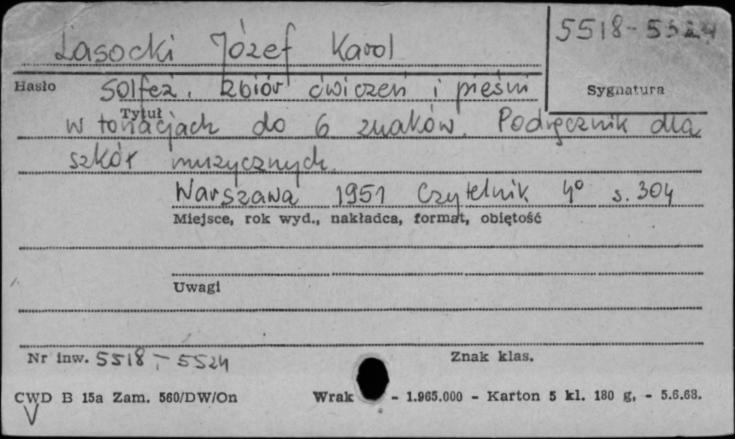 Lasocki Józef Karol
5518-5524
Hasło
Sygnatura
Solfeż. Zbiór ćwiczeń i pieśni
Tytuł
w tonacjach do 6 znaków. Podręcznik dla
szkół muzycznych.
Warszawa 1951 Czytelnik 4° s. 304
Miejsce, rok wyd., nakładca, format, objętość
Uwagi
Nr inw. 5518 - 5524
Znak klas.
CWD B 15a Zam. 560/DW/On Wrak - 1.965.000 - Karton 5 kl. 180 g, - 5.6.68.
V